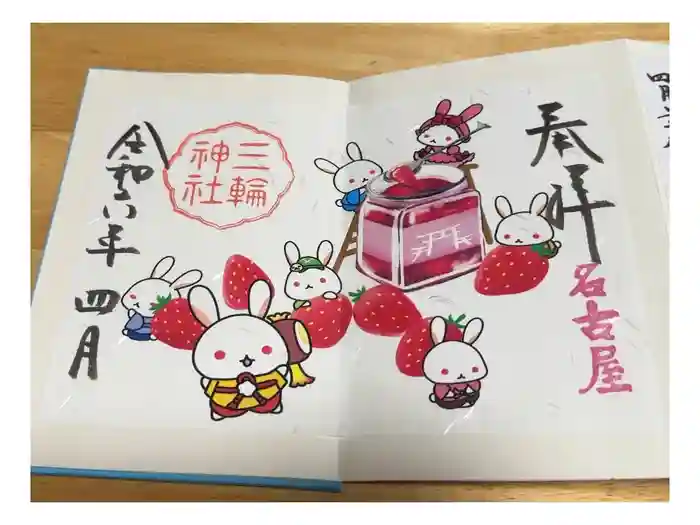 奉拝
名古屋
三輪
神社
令和六年 四月